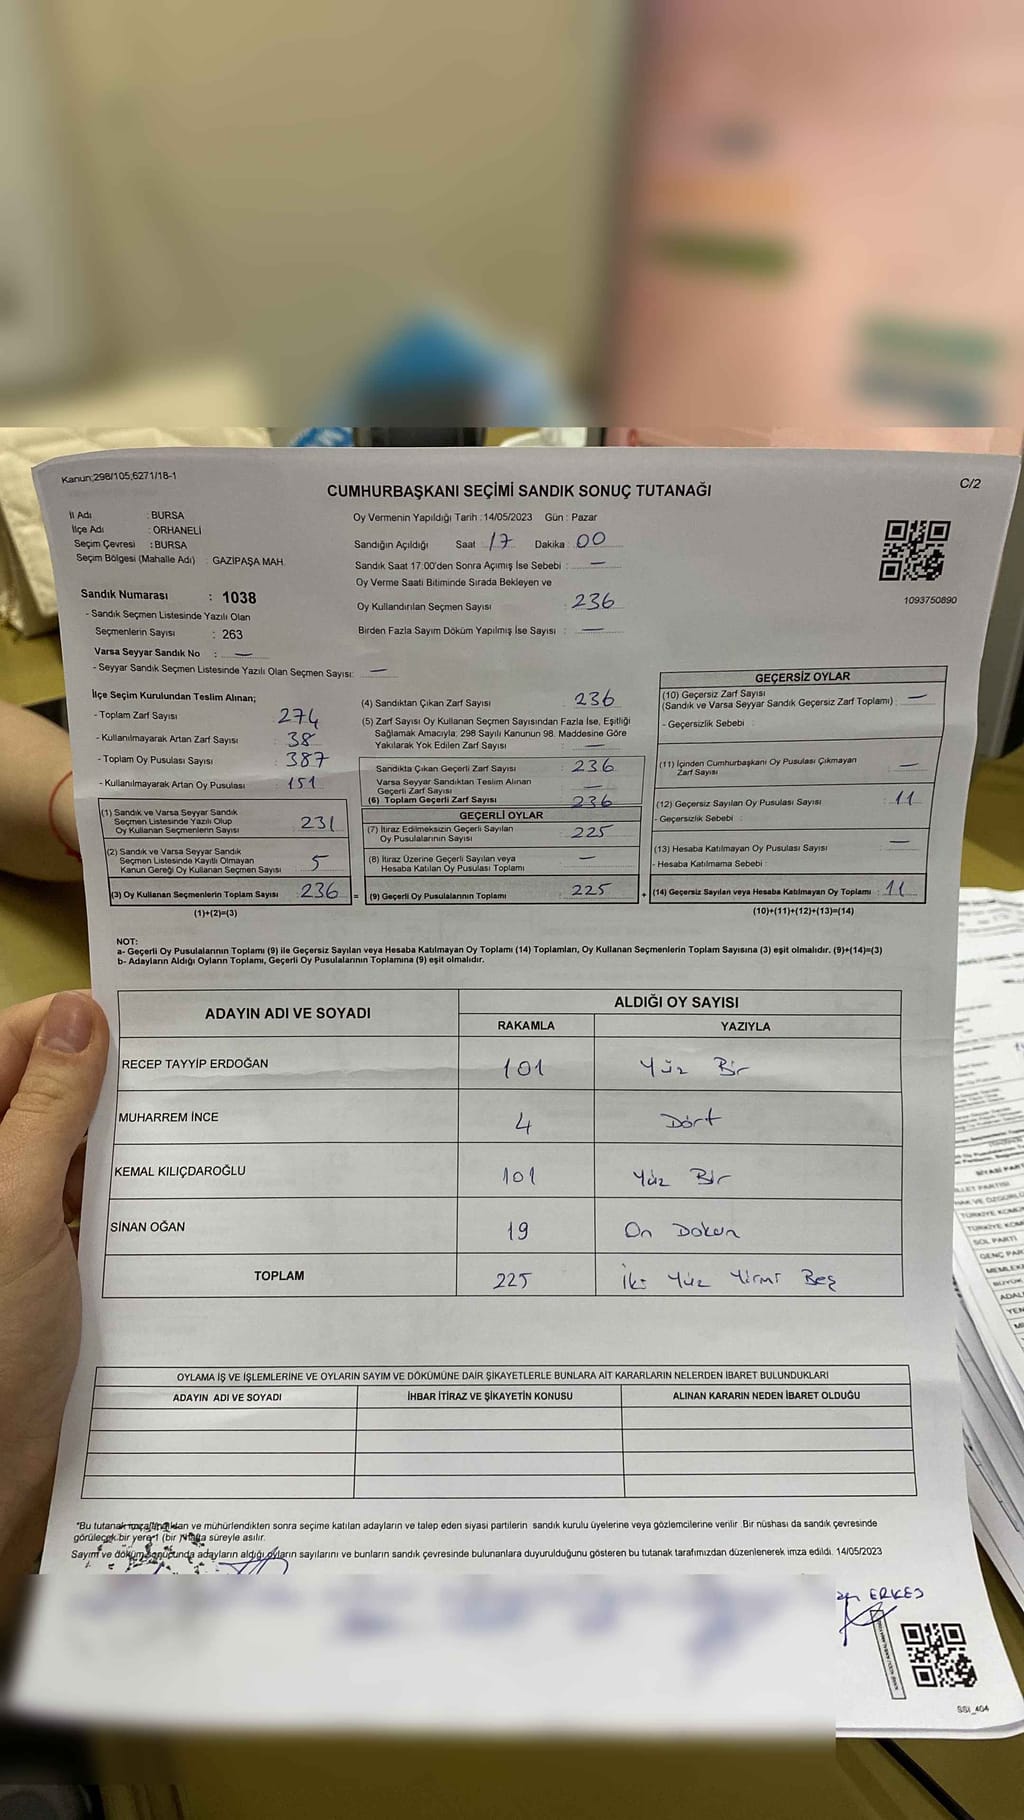 Kanun;298/105,6271/18-1
C/2
CUMHURBAŞKANI SEÇİMİ SANDIK SONUÇ TUTANAĞI
İl Adı : BURSA
İlçe Adı : ORHANELİ
Seçim Çevresi : BURSA
Seçim Bölgesi (Mahalle Adı) : GAZİPAŞA MAH.
Sandık Numarası : 1038
- Sandık Seçmen Listesinde Yazılı Olan
Seçmenlerin Sayısı : 263
Varsa Seyyar Sandık No : —
- Seyyar Sandık Seçmen Listesinde Yazılı Olan Seçmen Sayısı: —
Oy Vermenin Yapıldığı Tarih :14/05/2023 Gün : Pazar
Sandığın Açıldığı Saat 17 Dakika : 00
Sandık Saat 17:00'den Sonra Açımış İse Sebebi : —
Oy Verme Saati Bitiminde Sırada Bekleyen ve
Oy Kullandırılan Seçmen Sayısı : 236
Birden Fazla Sayım Döküm Yapılmış İse Sayısı : —
1093750890
İlçe Seçim Kurulundan Teslim Alınan;
- Toplam Zarf Sayısı : 274
- Kullanılmayarak Artan Zarf Sayısı : 38
- Toplam Oy Pusulası Sayısı : 387
- Kullanılmayarak Artan Oy Pusulası : 151
(1) Sandık ve Varsa Seyyar Sandık
Seçmen Listesinde Yazılı Olup
Oy Kullanan Seçmenlerin Sayısı : 231
(2) Sandık ve Varsa Seyyar Sandık
Seçmen Listesinde Kayıtlı Olmayan
Kanun Gereği Oy Kullanan Seçmen Sayısı : 5
(3) Oy Kullanan Seçmenlerin Toplam Sayısı : 236 =
(1)+(2)=(3)
(4) Sandıktan Çıkan Zarf Sayısı : 236
(5) Zarf Sayısı Oy Kullanan Seçmen Sayısından Fazla İse, Eşitliği
Sağlamak Amacıyla; 298 Sayılı Kanunun 98. Maddesine Göre
Yakılarak Yok Edilen Zarf Sayısı : —
Sandıkta Çıkan Geçerli Zarf Sayısı : 236
Varsa Seyyar Sandıktan Teslim Alınan
Geçerli Zarf Sayısı : —
(6) Toplam Geçerli Zarf Sayısı : 236
GEÇERLİ OYLAR
(7) İtiraz Edilmeksizin Geçerli Sayılan
Oy Pusulalarının Sayısı : 225
(8) İtiraz Üzerine Geçerli Sayılan veya
Hesaba Katılan Oy Pusulası Toplamı : —
(9) Geçerli Oy Pusulalarının Toplamı : 225 +
GEÇERSİZ OYLAR
(10) Geçersiz Zarf Sayısı
(Sandık ve Varsa Seyyar Sandık Geçersiz Zarf Toplamı) : —
- Geçersizlik Sebebi :
(11) İçinden Cumhurbaşkanı Oy Pusulası Çıkmayan
Zarf Sayısı : —
(12) Geçersiz Sayılan Oy Pusulası Sayısı : 11
- Geçersizlik Sebebi :
(13) Hesaba Katılmayan Oy Pusulası Sayısı : —
- Hesaba Katılmama Sebebi :
(14) Geçersiz Sayılan veya Hesaba Katılmayan Oy Toplamı : 11
(10)+(11)+(12)+(13)=(14)
NOT:
a- Geçerli Oy Pusulalarının Toplamı (9) ile Geçersiz Sayılan veya Hesaba Katılmayan Oy Toplamı (14) Toplamları, Oy Kullanan Seçmenlerin Toplam Sayısına (3) eşit olmalıdır. (9)+(14)=(3)
b- Adayların Aldığı Oyların Toplamı, Geçerli Oy Pusulalarının Toplamına (9) eşit olmalıdır.
ADAYIN ADI VE SOYADI ALDIĞI OY SAYISI
RAKAMLA YAZIYLA
RECEP TAYYİP ERDOĞAN 101 Yüz Bir
MUHARREM İNCE 4 Dört
KEMAL KILIÇDAROĞLU 101 Yüz Bir
SİNAN OĞAN 19 On Dokuz
TOPLAM 225 İki Yüz Yirmi Beş
OYLAMA İŞ VE İŞLEMLERİNE VE OYLARIN SAYIM VE DÖKÜMÜNE DAİR ŞİKAYETLERLE BUNLARA AİT KARARLARIN NELERDEN İBARET BULUNDUKLARI
ADAYIN ADI VE SOYADI İHBAR İTİRAZ VE ŞİKAYETİN KONUSU ALINAN KARARIN NEDEN İBARET OLDUĞU
*Bu tutanak imzalandıktan ve mühürlendikten sonra seçime katılan adayların ve talep eden siyasi partilerin sandık kurulu üyelerine veya gözlemcilerine verilir .Bir nüshası da sandık çevresinde
görülecek bir yere 1 (bir ) hafta süreyle asılır.
Sayım ve döküm sonucunda adayların aldığı oyların sayılarını ve bunların sandık çevresinde bulunanlara duyurulduğunu gösteren bu tutanak tarafımızdan düzenlenerek imza edildi. 14/05/2023
ERKES
SSI_404
SİYASİ PARTİ